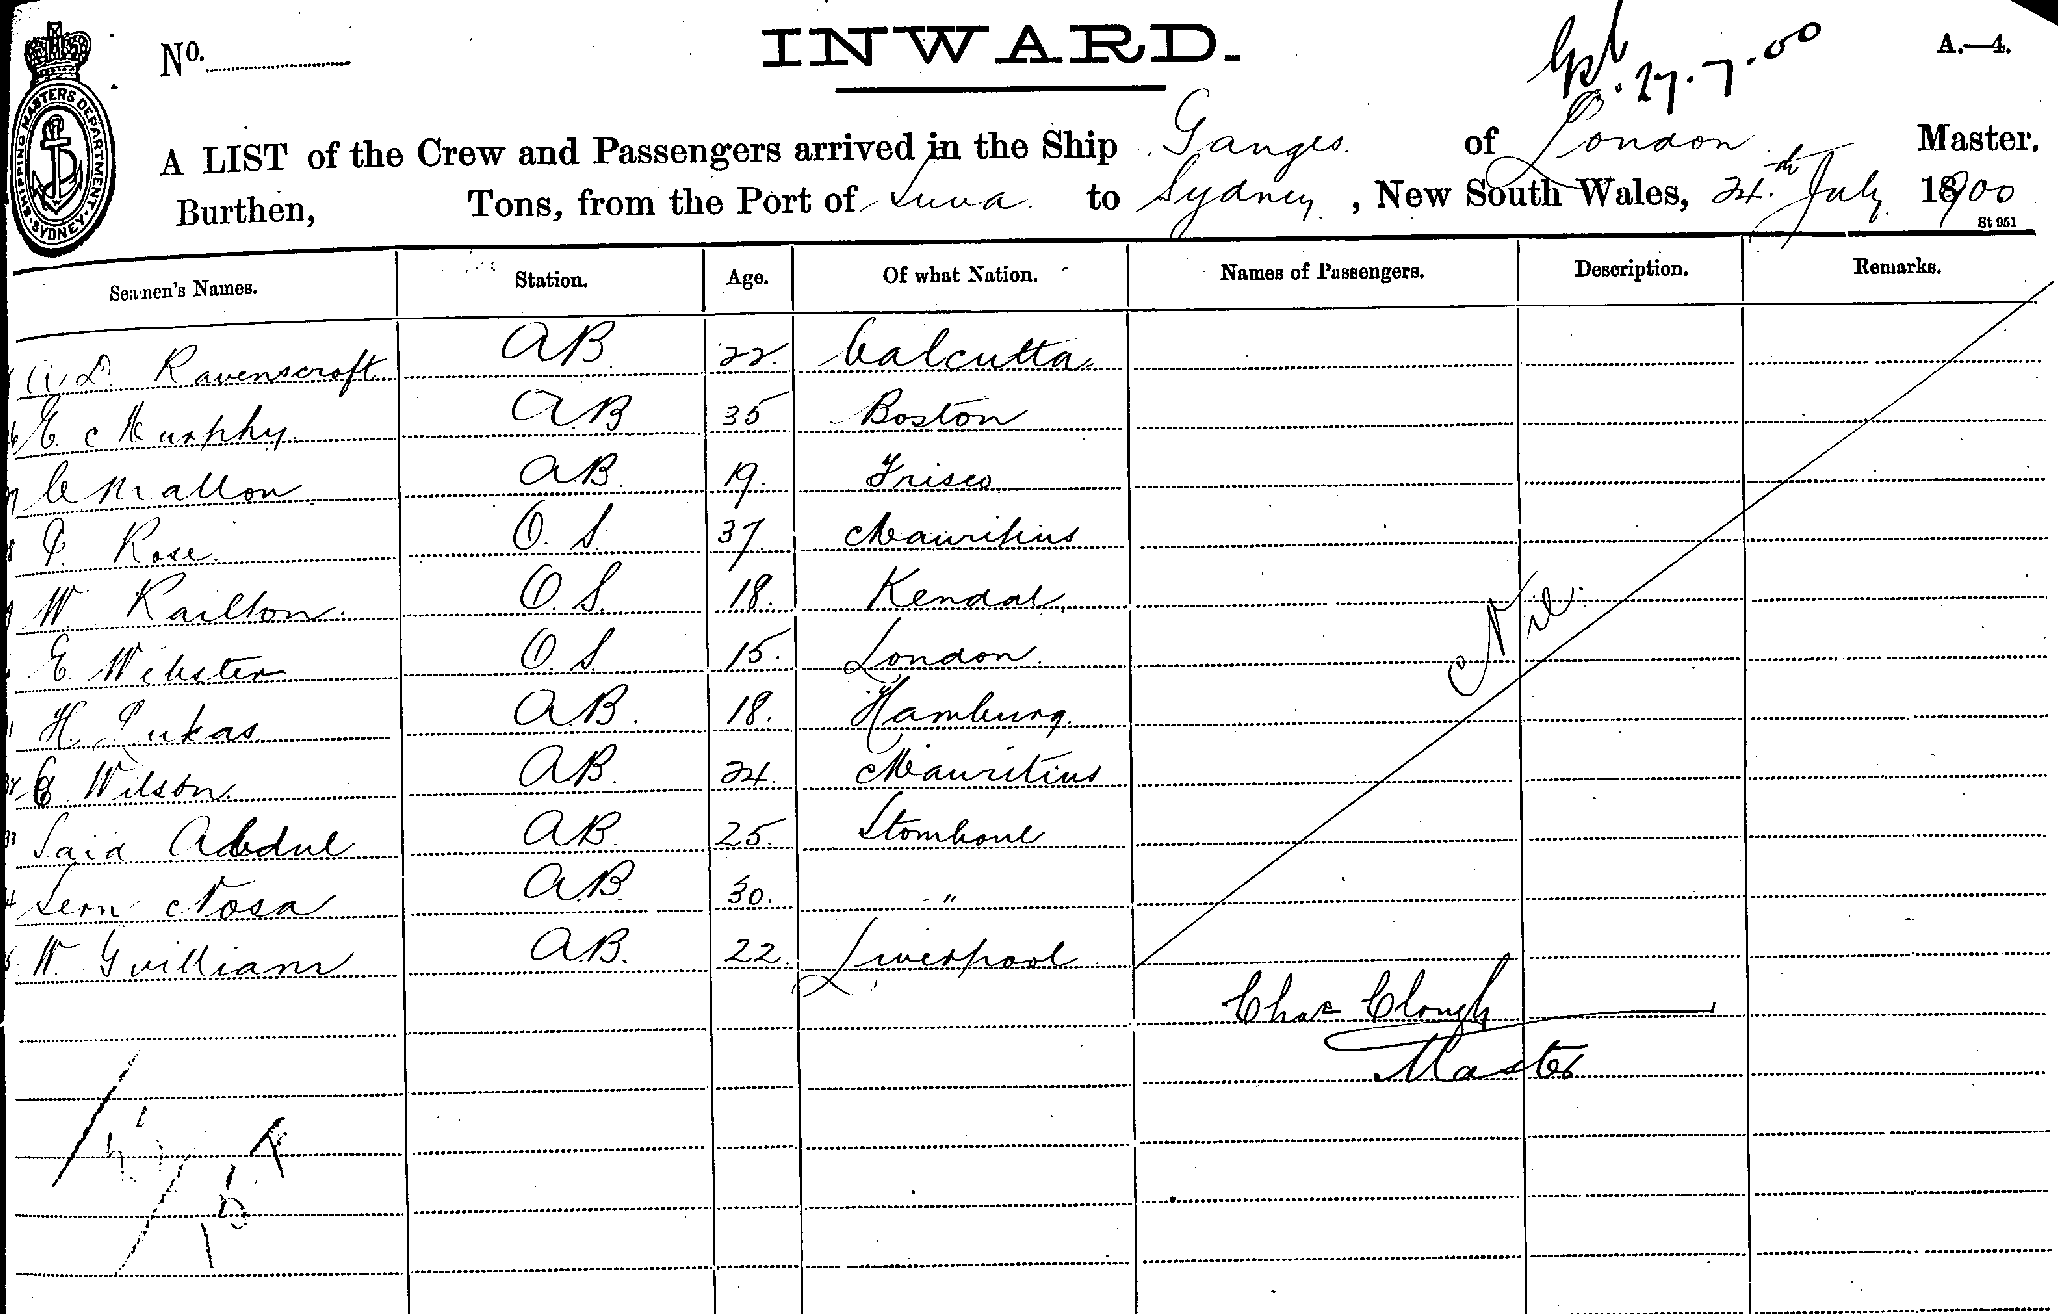 INWARD.
No.
27.7.00
A.—4.
SHIPPING MASTERS DEPARTMENT. SYDNEY.
A LIST of the Crew and Passengers arrived in the Ship Ganges. of London Master.
Burthen, Tons, from the Port of Suva. to Sydney, New South Wales, 24th July 1900
St 951
Seamen's Names. Station. Age. Of what Nation. Names of Passengers. Description. Remarks.
Ravenscroft AB 22. Calcutta
E Mc Murphy AB 35 Boston
C Mallon AB. 19. Frisco
Rose O.S. 37 Mauritius
W Railton. O.S. 18. Kendal
E Webster O.S. 15. London.
H Lukas AB. 18. Hamburg
C Wilson AB. 24. Mauritius
33 Said Abdul AB. 25. Stomboul
Nosa AB. 30. "
W. Gwilliam AB. 22. Liverpool
Nil.
Chas Clough
Master